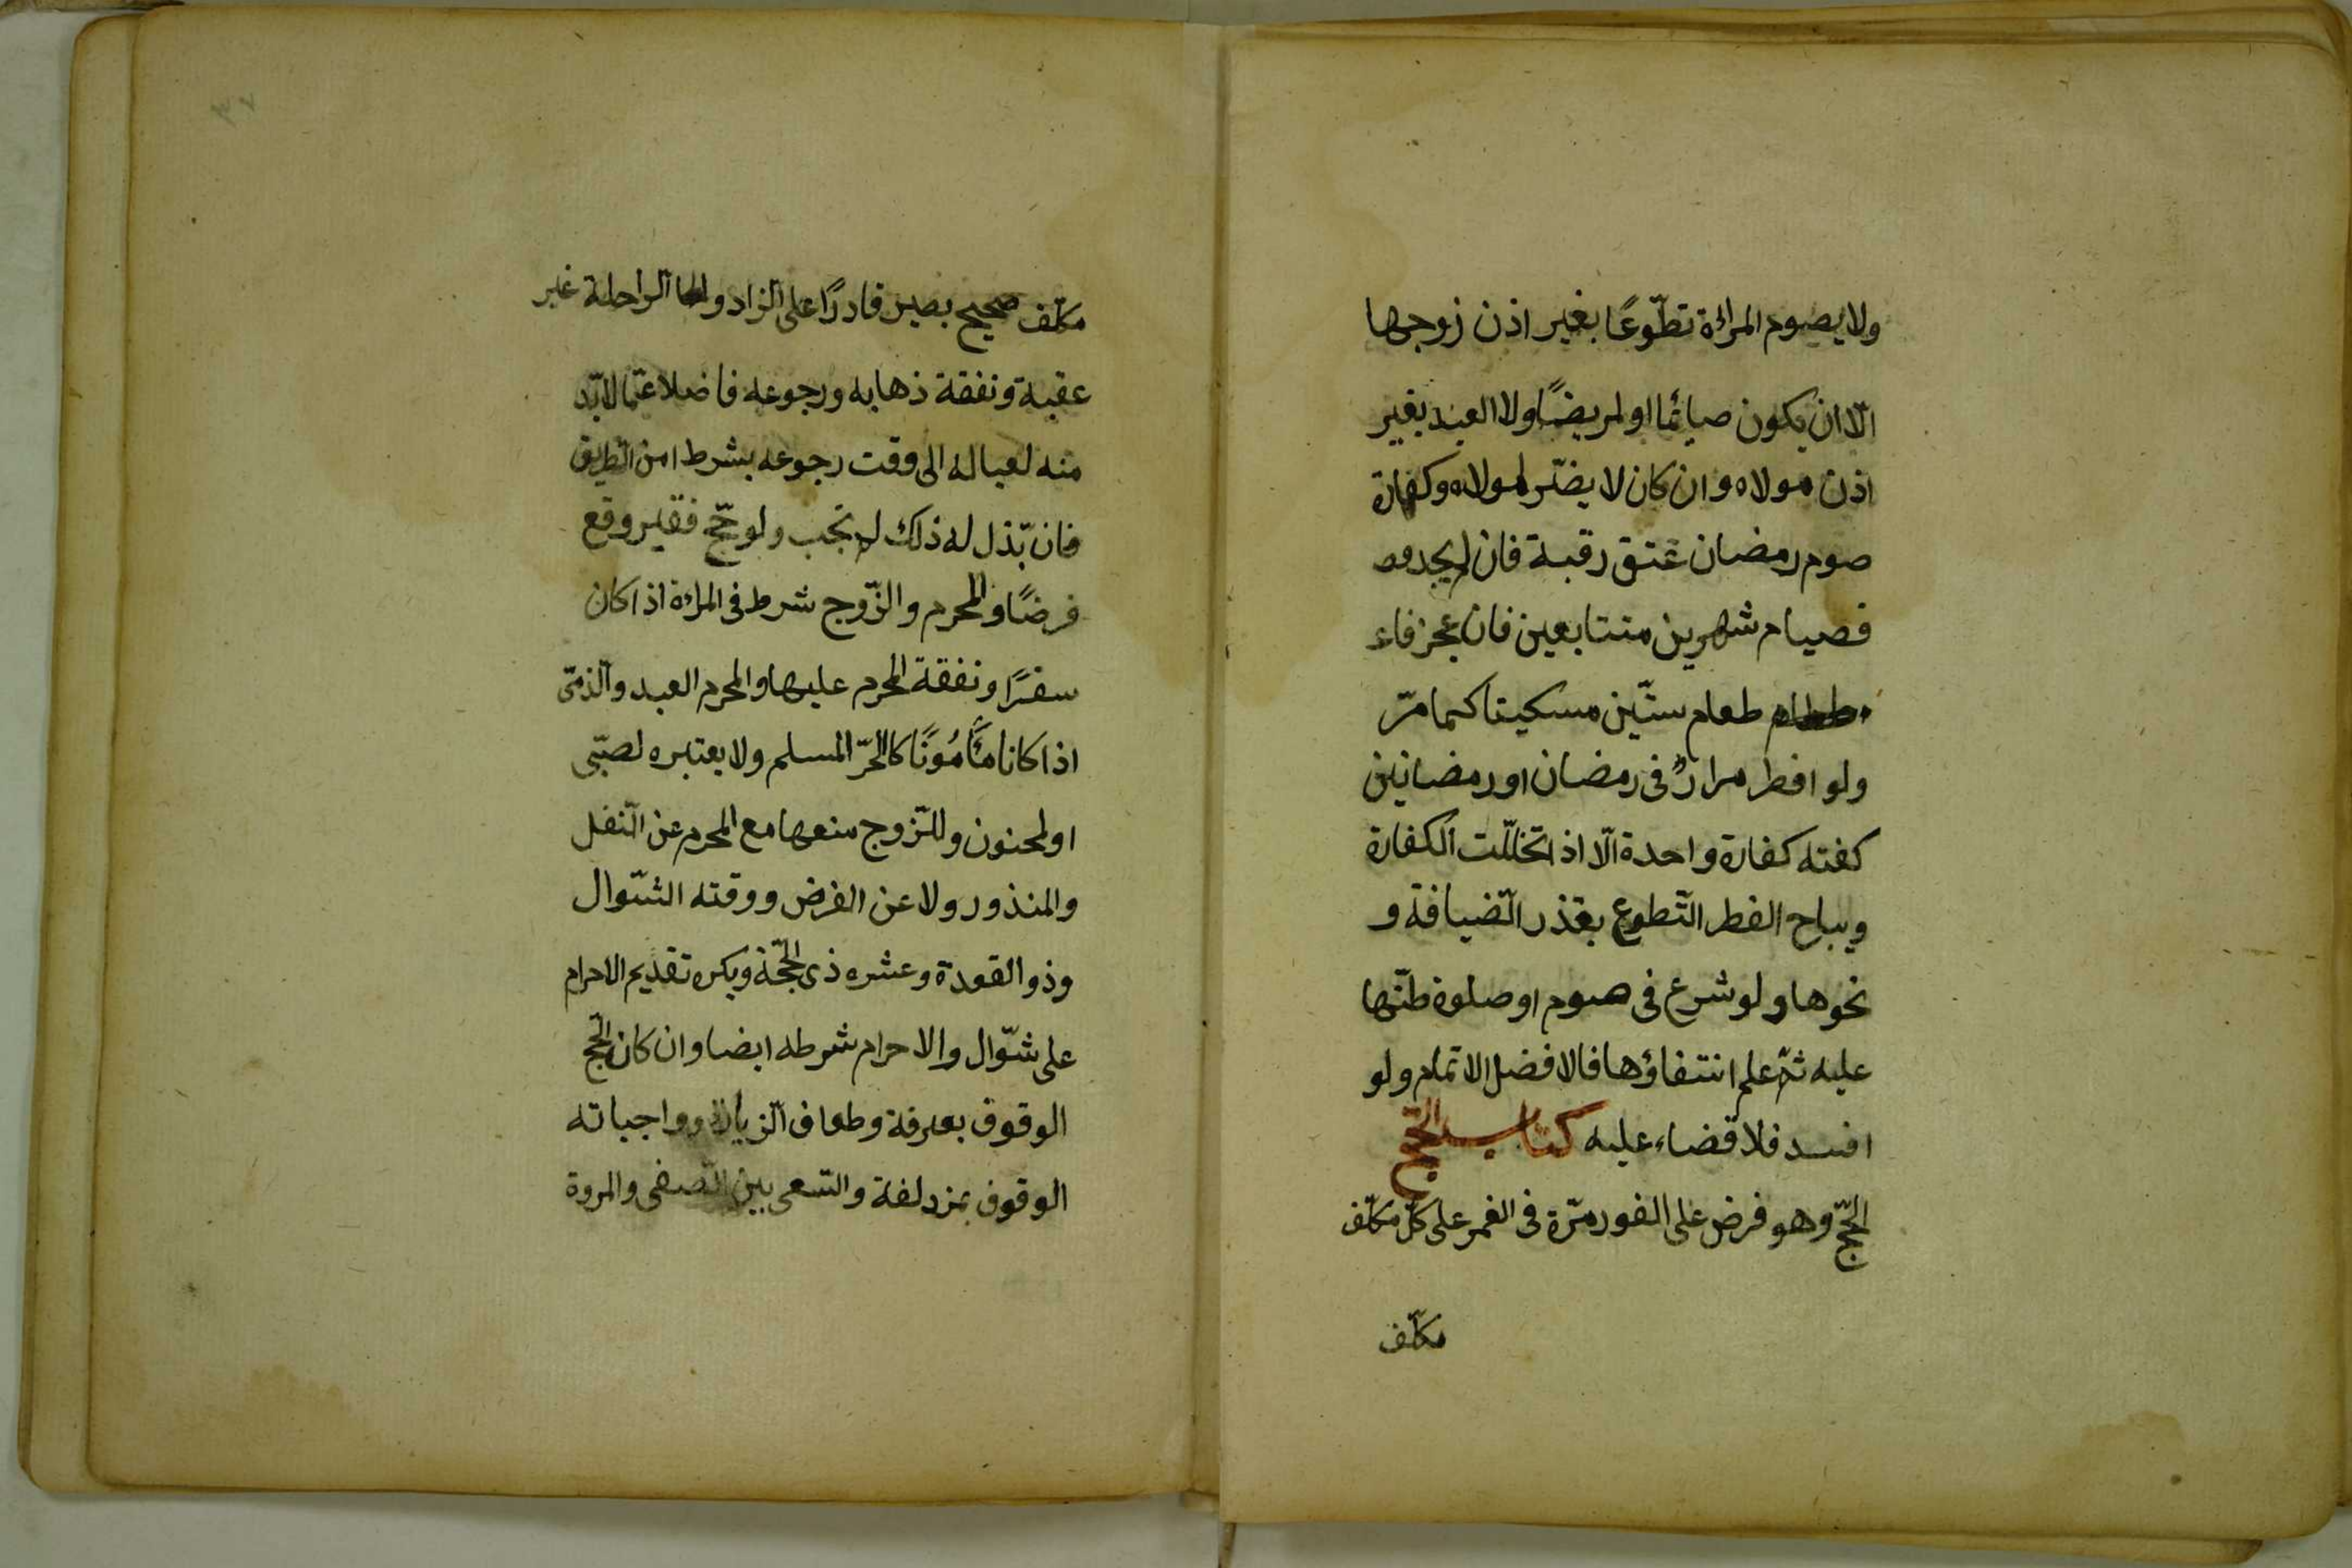 ولا يصوم المراءة تطّوعًا بغير اذن زوجها
الّا ان يكون صائما او مريضًا ولا العبد بغير
اذن مولاه وان كان لا يضّر لمولاه وكفارة
صوم رمضان عتق رقبة فان لم يجد
فصيام شهرين متتابعين فان عجز فاء
طعام ستّين مسكينا كما مرّ
ولو افطر مرارًا فى رمضان او رمضانين
كفته كفارة واحدة الّا اذا تخلّلت الكفارة
ويباح الفطر التّطوع بعذر الضّيافة و
نحوها ولو شرع فى صوم او صلوة ظنّها
عليه ثمّ علم انتفاؤها فالافضل الاتمام ولو
افسد فلا قضاء عليه كتاب الحّج
الحّج وهو فرض على الفور مرّة فى العمر على كلّ مكلّف
مكلّف
مكلّف صحيح بصير قادرًا على الزاد و الراحلة غير
عقبة ونفقة ذهابه ورجوعه فاضلا عمّا لابّد
منه لعياله الى وقت رجوعه بشرط امن الطريق
فان بّذل له ذلك لم تجب ولو حّج فقير وقع
فرضًا والمحرم والزّوج شرط فى المراة اذا كان
سفرًا ونفقة المحرم عليها والمحرم العبد والذمّى
اذا كانا مَأمُونًا كالحرّ المسلم ولا يعتبره لصبّى
او لمجنون وللزّوج منعها مع المحرم عن النّفل
والمنذور ولا عن الفرض ووقته الشّوال
وذو القعدة وعشره ذى الحجّة ويكره تقديم الاحرام
على شوّال والاحرام شرطه ايضا وان كان الحّج
الوقوف بعرفة وطواف الزيارة وواجباته
الوقوف بمزدلفة والسّعى بين الصّفى والمروة